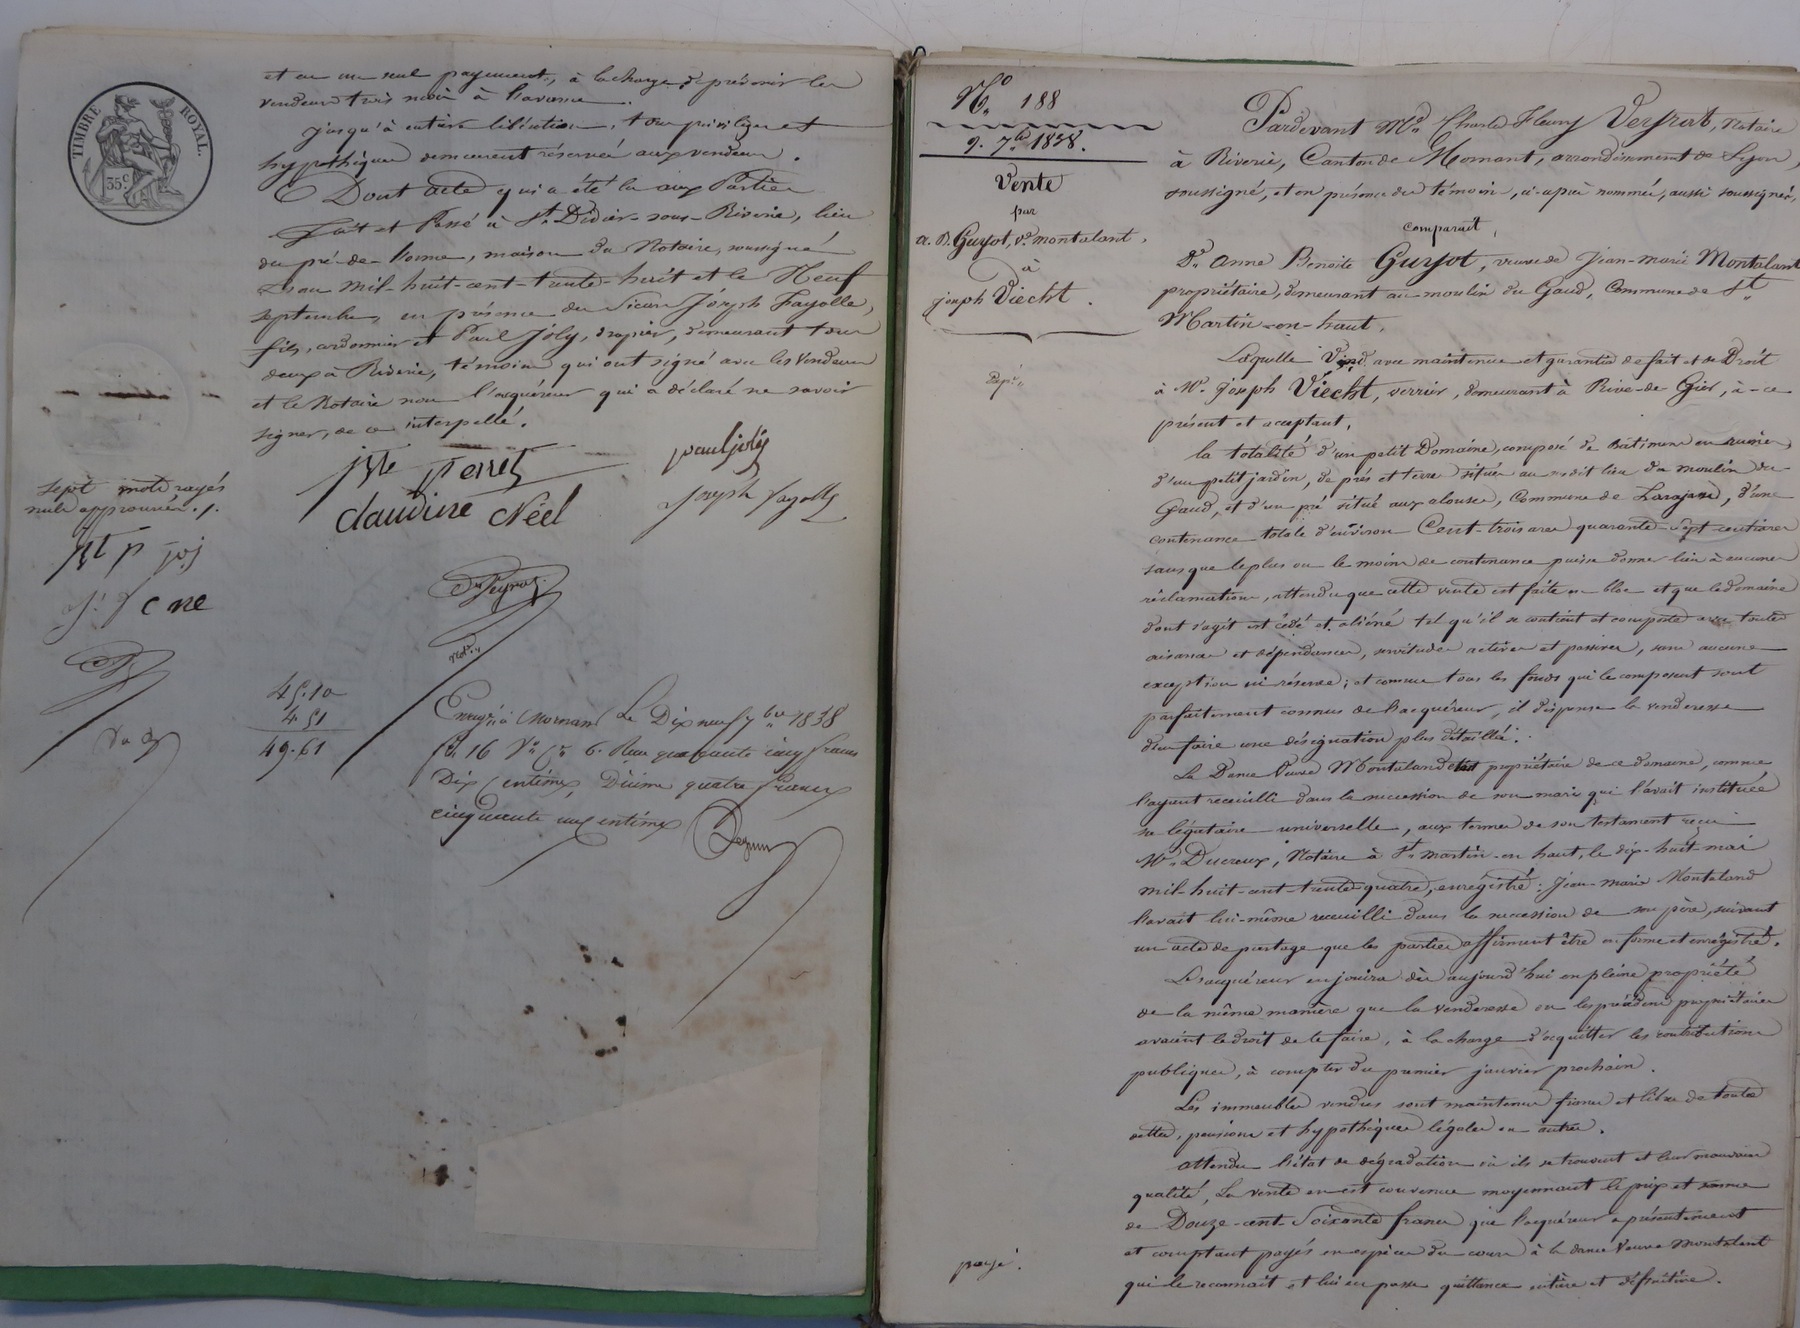 TIMBRE ROYAL.
35 c
et en un seul payement, à la charge de prévenir les
vendeurs trois mois à l'avance.
Jusqu'à entière libération, tous privilèges et
hypothèques demeurent réservés aux vendeurs.
Dont acte qui a été lu aux Parties
Fait et Passé à St Didier-sous-Riverie, lieu
du pré-de- , maison du Notaire soussigné
L'an mil-huit-cent-trente-huit et le Neuf
septembre, en présence des Sieurs Joseph Fayolle,
fils, cordonnier et Paul Joly, drapier, demeurant tous
deux à Riverie, témoins qui ont signé avec les vendeurs
et le Notaire non l'acquéreur qui a déclaré ne savoir
signer, de ce interpellé.
Jste perret
paul joly
Claudine Néel
Joseph fayolle
Sept mots rayés
nuls approuvés ./.
Jst p joj
not.
45.10
4.51
49.61
Enregé à Mornant Le Dix neuf 7bre 1838
fo 16 Vo Ce 6. Reçu quarante cinq francs
Dix Centimes, Décime quatre francs
cinquante un centimes
No 188
9. 7bre 1838.
Vente
par
a. B. Guyot, ve montalant,
à
joseph Viecht.
Expé
payé.
Pardevant Me Charles Fleury Veyrat, Notaire
à Riverie, Canton de Mornant, arrondissement de Lyon,
soussigné, et en présence des témoins, ci-après nommés, aussi soussignés,
comparait,
De Anne Benoite Guyot, veuve de Jean-marie Montalant
propriétaire, demeurant au moulin du Gaud, Commune de St
Martin-en-haut,
Laquelle Vend avec maintenue et garantie de fait et de Droit
à Mr Joseph Viecht, verrier, demeurant à Rive-de-Gier, à-ce
présent et acceptant,
la totalité d'un petit Domaine, composé de Bâtimens en ruines,
d'un petit jardin, de prés et terres situés au susdit lieu du moulin du
Gaud, et d'un pré situé aux alouses, Commune de Larajasse, d'une
contenance totale d'environ Cent-trois ares quarante-sept centiares
sans que le plus ou le moins de contenance puisse donner lieu à aucunes
réclamations, attendu que cette vente est faite en bloc et que le domaine
dont s'agit est cédé et aliéné tel qu'il se contient et comporte avec toutes
aisances et dépendances, servitudes actives et passives, sans aucune
exception ni réserve; et comme tous les fonds qui le composent sont
parfaitement connus de l'acquéreur, il dispense la venderesse
d'en faire une désignation plus détaillée.
La Dame Veuve Montaland est propriétaire de ce domaine, comme
l'ayant recueilli dans la succession de son mari qui l'avait instituée
sa légataire universelle, aux termes de son testament reçu
Me Ducreux, Notaire à St martin-en haut, le dix-huit mai
mil-huit-cent-trente-quatre, enregistré: Jean-marie Montaland
l'avait lui-même recueilli dans la succession de son père, suivant
un acte de partage que les parties affirment être en forme et enregistré.
L'acquéreur en jouira dès aujourd'hui en pleine propriété
de la même manière que la venderesse ou les précédens propriétaires
avaient le droit de le faire, à la charge d'acquitter les contributions
publiques, à compter du premier janvier prochain.
Les immeubles vendus sont maintenus francs et libres de toutes
dettes, pensions et hypothèques légales ou autres.
Attendu l'état de dégradation où ils se trouvent et leur mauvaise
qualité, La vente en est convenue moyennant le prix et somme
de Douze-cent-Soixante francs que l'acquéreur a présentement
et comptant payés en espèces du cours à la dame Veuve Montalant
qui le reconnait et lui en passe quittance entière et définitive.